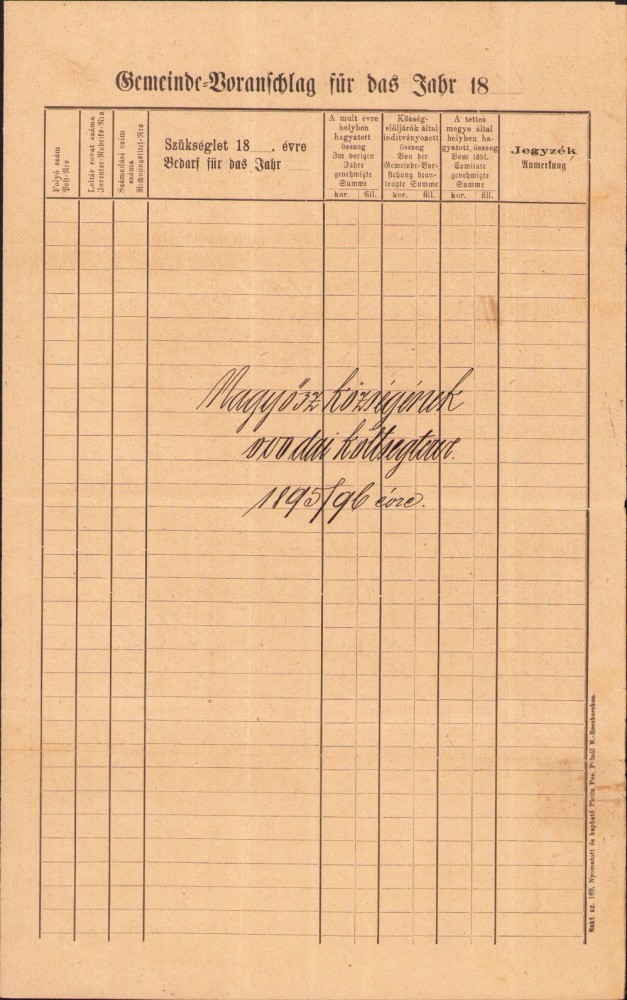 Gemeinde-Voranschlag für das Jahr 18
Folyó szám
Post-Nro
Leltár rovat száma
Inventar-Rubriks-Nro
Számadási czim
száma
Rechnungstitel-Nro
Szükséglet 18 . évre
Bedarf für das Jahr
A mult évre
helyben
hagyatott
összeg
Im vorigen
Jahre
genehmigte
Summe
kor. fill.
Község-
elöljárók által
inditványozott
összeg
Von der
Gemeinde-Vor-
stehung bean-
tragte Summe
kor. fill.
A tettes
megye által
helyben ha-
gyatott, összeg
Vom löbl.
Comitate
genehmigte
Summe
kor. fill.
Jegyzék
Anmerkung
Nagyősz községének
ovodai költségterv.
1895/96 évre.
Rakt. sz. 169. Nyomatott és kapható Pleitz Fer. Pálnál N.-Becskereken.